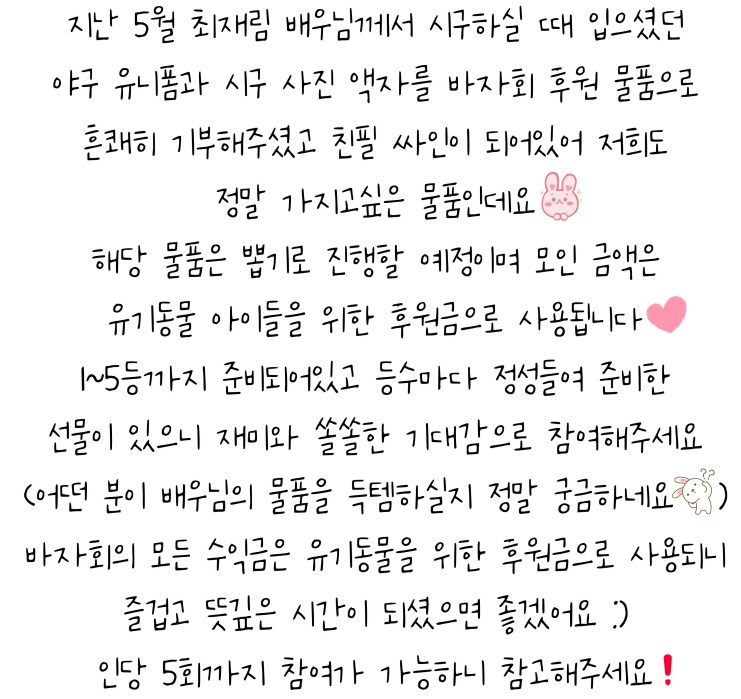 지난 5월 최재림 배우님께서 시구하실 때 입으셨던
야구 유니폼과 시구 사진 액자를 바자회 후원 물품으로
흔쾌히 기부해주셨고 친필 싸인이 되어있어 저희도
정말 가지고싶은 물품인데요
해당 물품은 뽑기로 진행할 예정이며 모인 금액은
유기동물 아이들을 위한 후원금으로 사용됩니다
1~5등까지 준비되어있고 등수마다 정성들여 준비한
선물이 있으니 재미와 쏠쏠한 기대감으로 참여해주세요
(어떤 분이 배우님의 물품을 득템하실지 정말 궁금하네요??)
바자회의 모든 수익금은 유기동물을 위한 후원금으로 사용되니
즐겁고 뜻깊은 시간이 되셨으면 좋겠어요 :)
인당 5회까지 참여가 가능하니 참고해주세요❗